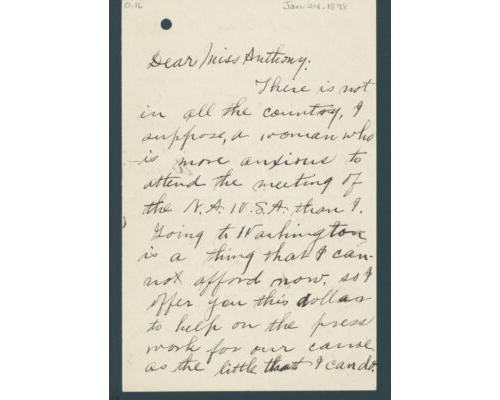 0.16
Jan 24. 1898
Dear Miss Anthony.
There is not
in all the country, I
suppose, a woman who
is more anxious to
attend the meeting of
the N.A.W.S.A. than I.
Going to Washington
is a thing that I can-
not afford now, so I
offer you this dollar
to help on the press
work for our cause
as the little that I can do.